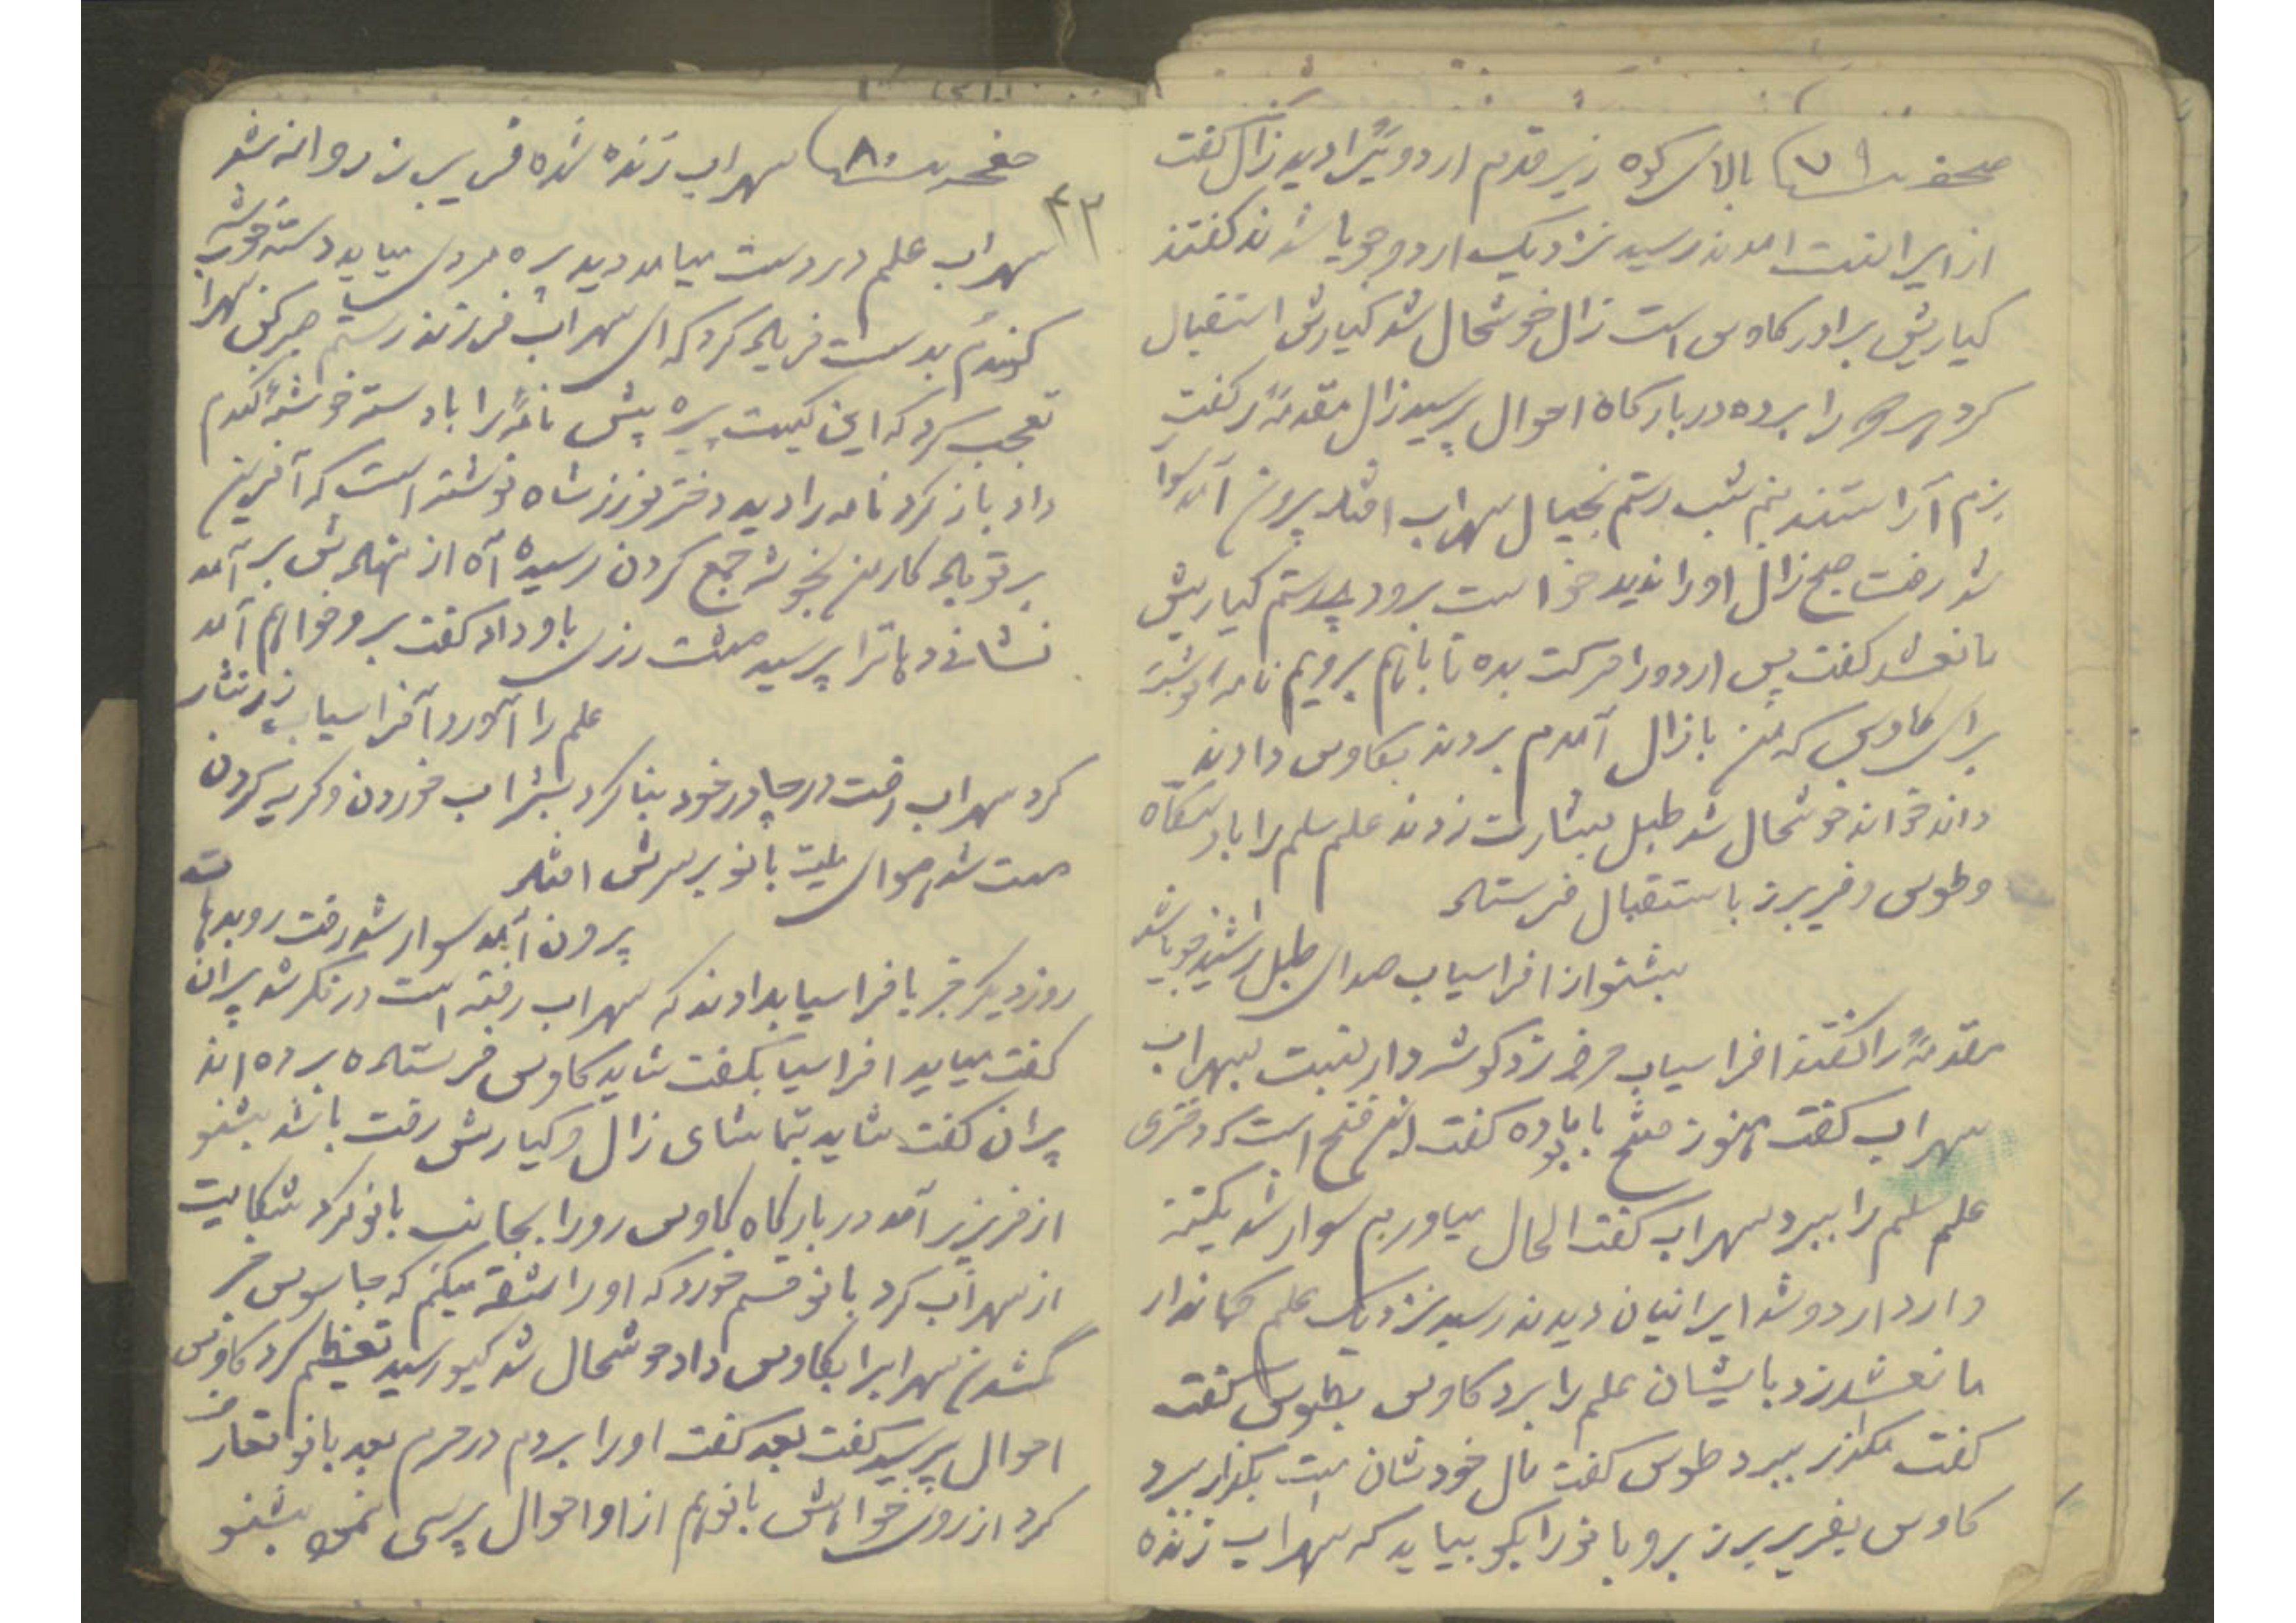 صحفه ۷۹ بالای کوه زیر قدم اردوئیرا دید زال گفت
از ایرانست امدند رسید نزدیک اردو جویا شدند گفتند
کیاریش برادر کاوس است زال خوشحال شد کیارش استقبال
کرد را برده در بارگاه احوال پرسید زال مقدمه را گفت
بزم آراستند نیم شب رستم بخیال سهراب افتاد بیرون آمد سوا
شد رفت صبح زال او را ندید خواست برود رستم کیاریش
مانعشد گفت پس اردو را حرکت بده تا باهم برویم نامه نوشتند
برای کاوس که من با زال آمدم بردند بکاوس دادند
داند خواند خوشحال شد طبل بشارت زدند علم سلم را با
وطوس و فریبرز باستقبال فرستاد
بشنو از افراسیاب صدای طبل را شنید جویا شد
مقدمه را گفتند افراسیاب حرف نزد گوشه دار نسبت بسهراب
سهراب گفت هنوز فتح گفت این فتح است که دختری
علم سلم را ببرد سهراب گفت الحال میاورم سوار شد یکتنه
وارد اردو شد ایرانیان دیدند رسید نزدیک علم کماندار
مانعشد زد بایشان علم را برد کاوس بطوس گفت
گفت مگذار ببرد طوس گفت مال خودشان است بگذار ببرد
کاوس بفریبرز برو بانو را بگو بیاید که سهراب زنده
صفحه ۸۰ سهراب زنده شده فریبرز روانه شد
۴۳
سهراب علم در دست میامد دید پره مردی میاید دسته خوشه
گندم بدست فریاد کرد که ای سهراب فرزند رستم صبر کن سهرا
تعجب کرد که این کیست پره پیش نامه را با دسته خوشه گندم
داد باز کرد نامه را دید دختر نوزرشاه نوشته است که آفرین
بر تو باد کار من بخوشه جمع کردن رسیده آه از نهادش بر آمد
نشانی دهاترا پرسید مشت زری باو داد گفت برو خواهم آمد
علم را آورد آفراسیاب زر نثار
کرد سهراب رفت در چادر خود بنا کرد بشراب خوردن و گریه کردن
مست شد هوای بانو بر سرش افتاد
بیرون آمد سوار شد رفت رو بدهات
روز دیگر خبر بافراسیاب دادند که سهراب رفته است در فکر شد پران
گفت میاید افراسیاب گفت شاید کاوس فرستاده برده اند
پران گفت شاید بتماشای زال و کیارش رفت باشد بشنو
از فریبرز آمد در بارگاه کاوس رو را بجانب بانو کرد شکایت
از سهراب کرد بانو قسم خورد که او را شقه میکنم که جاسوس خبر
گمشدن سهرابرا بکاوس داد خوشحال شد گیو رسید تعظیم کرد کاوس
احوال پرسید گفت بعد گفت او را بردم در حرم بعد بانو تعارف
کرد از روی خواهش بانو هم از او احوال پرسی نمود بشنو